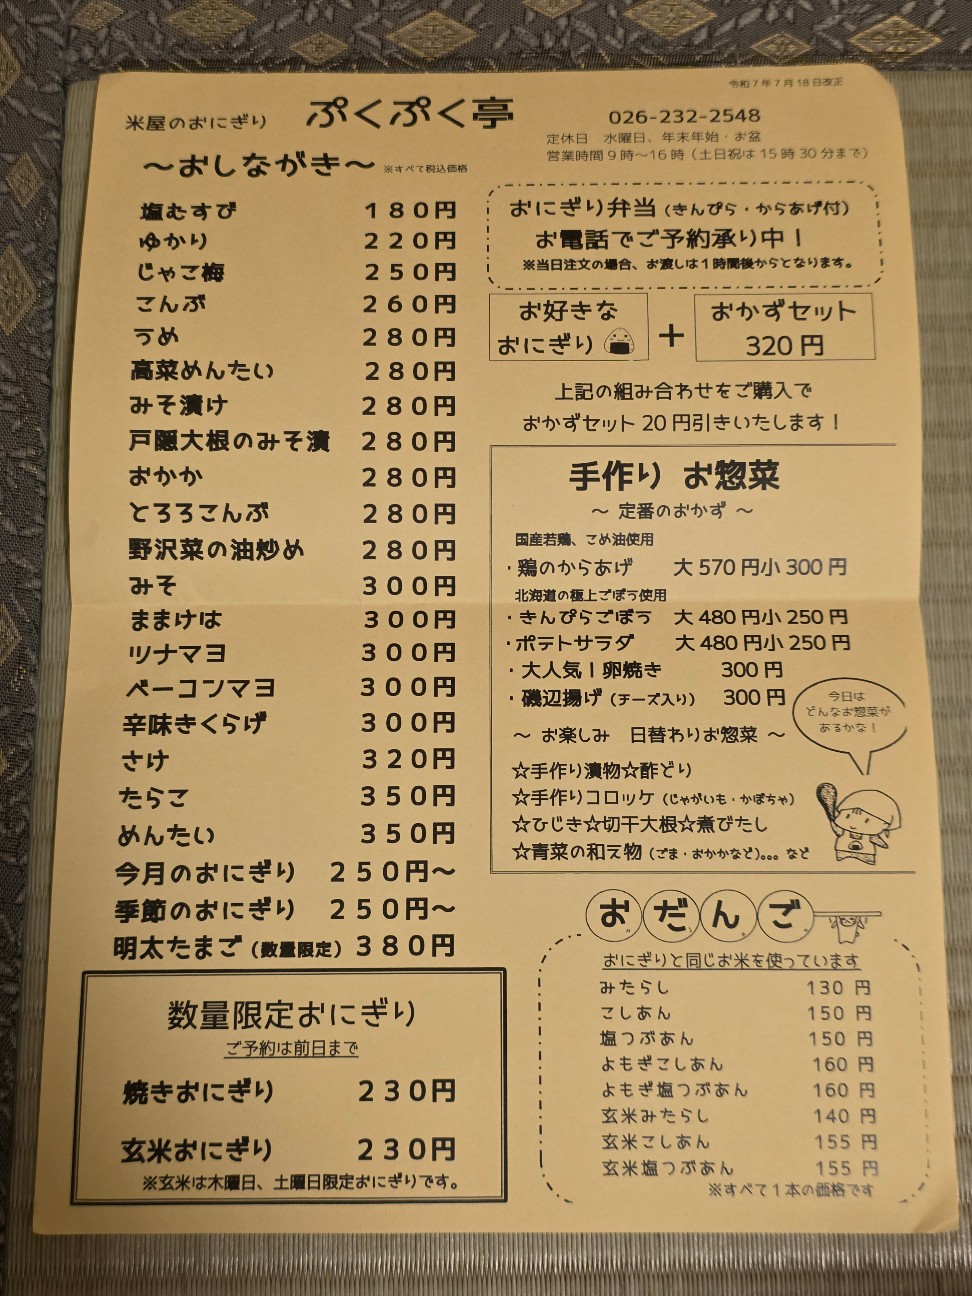 令和7年7月18日改正
米屋のおにぎり ぷくぷく亭
026-232-2548
定休日 水曜日、年末年始・お盆
営業時間9時～16時（土日祝は15時30分まで）
～おしながき～ ※すべて税込価格
塩むすび 180円
ゆかり 220円
じゃこ梅 250円
こんぶ 260円
うめ 280円
高菜めんたい 280円
みそ漬け 280円
戸隠大根のみそ漬 280円
おかか 280円
とろろこんぶ 280円
野沢菜の油炒め 280円
みそ 300円
ままけは 300円
ツナマヨ 300円
ベーコンマヨ 300円
辛味きくらげ 300円
さけ 320円
たらこ 350円
めんたい 350円
今月のおにぎり 250円～
季節のおにぎり 250円～
明太たまご（数量限定）380円
数量限定おにぎり
ご予約は前日まで
焼きおにぎり 230円
玄米おにぎり 230円
※玄米は木曜日、土曜日限定おにぎりです。
おにぎり弁当（きんぴら・からあげ付）
お電話でご予約承り中！
※当日注文の場合、お渡しは1時間後からとなります。
お好きな
おにぎり
＋
おかずセット
320円
上記の組み合わせをご購入で
おかずセット20円引きいたします！
手作り お惣菜
～ 定番のおかず ～
国産若鶏、こめ油使用
・鶏のからあげ 大570円小300円
北海道の極上ごぼう使用
・きんぴらごぼう 大480円小250円
・ポテトサラダ 大480円小250円
・大人気！卵焼き 300円
・磯辺揚げ（チーズ入り） 300円
今日は
どんなお惣菜が
あるかな！
～ お楽しみ 日替わりお惣菜 ～
☆手作り漬物☆酢どり
☆手作りコロッケ（じゃがいも・かぼちゃ）
☆ひじき☆切干大根☆煮びたし
☆青菜の和え物（ごま・おかかなど）。。。など
おだんご
おにぎりと同じお米を使っています
みたらし 130円
こしあん 150円
塩つぶあん 150円
よもぎこしあん 160円
よもぎ塩つぶあん 160円
玄米みたらし 140円
玄米こしあん 155円
玄米塩つぶあん 155円
※すべて1本の価格です